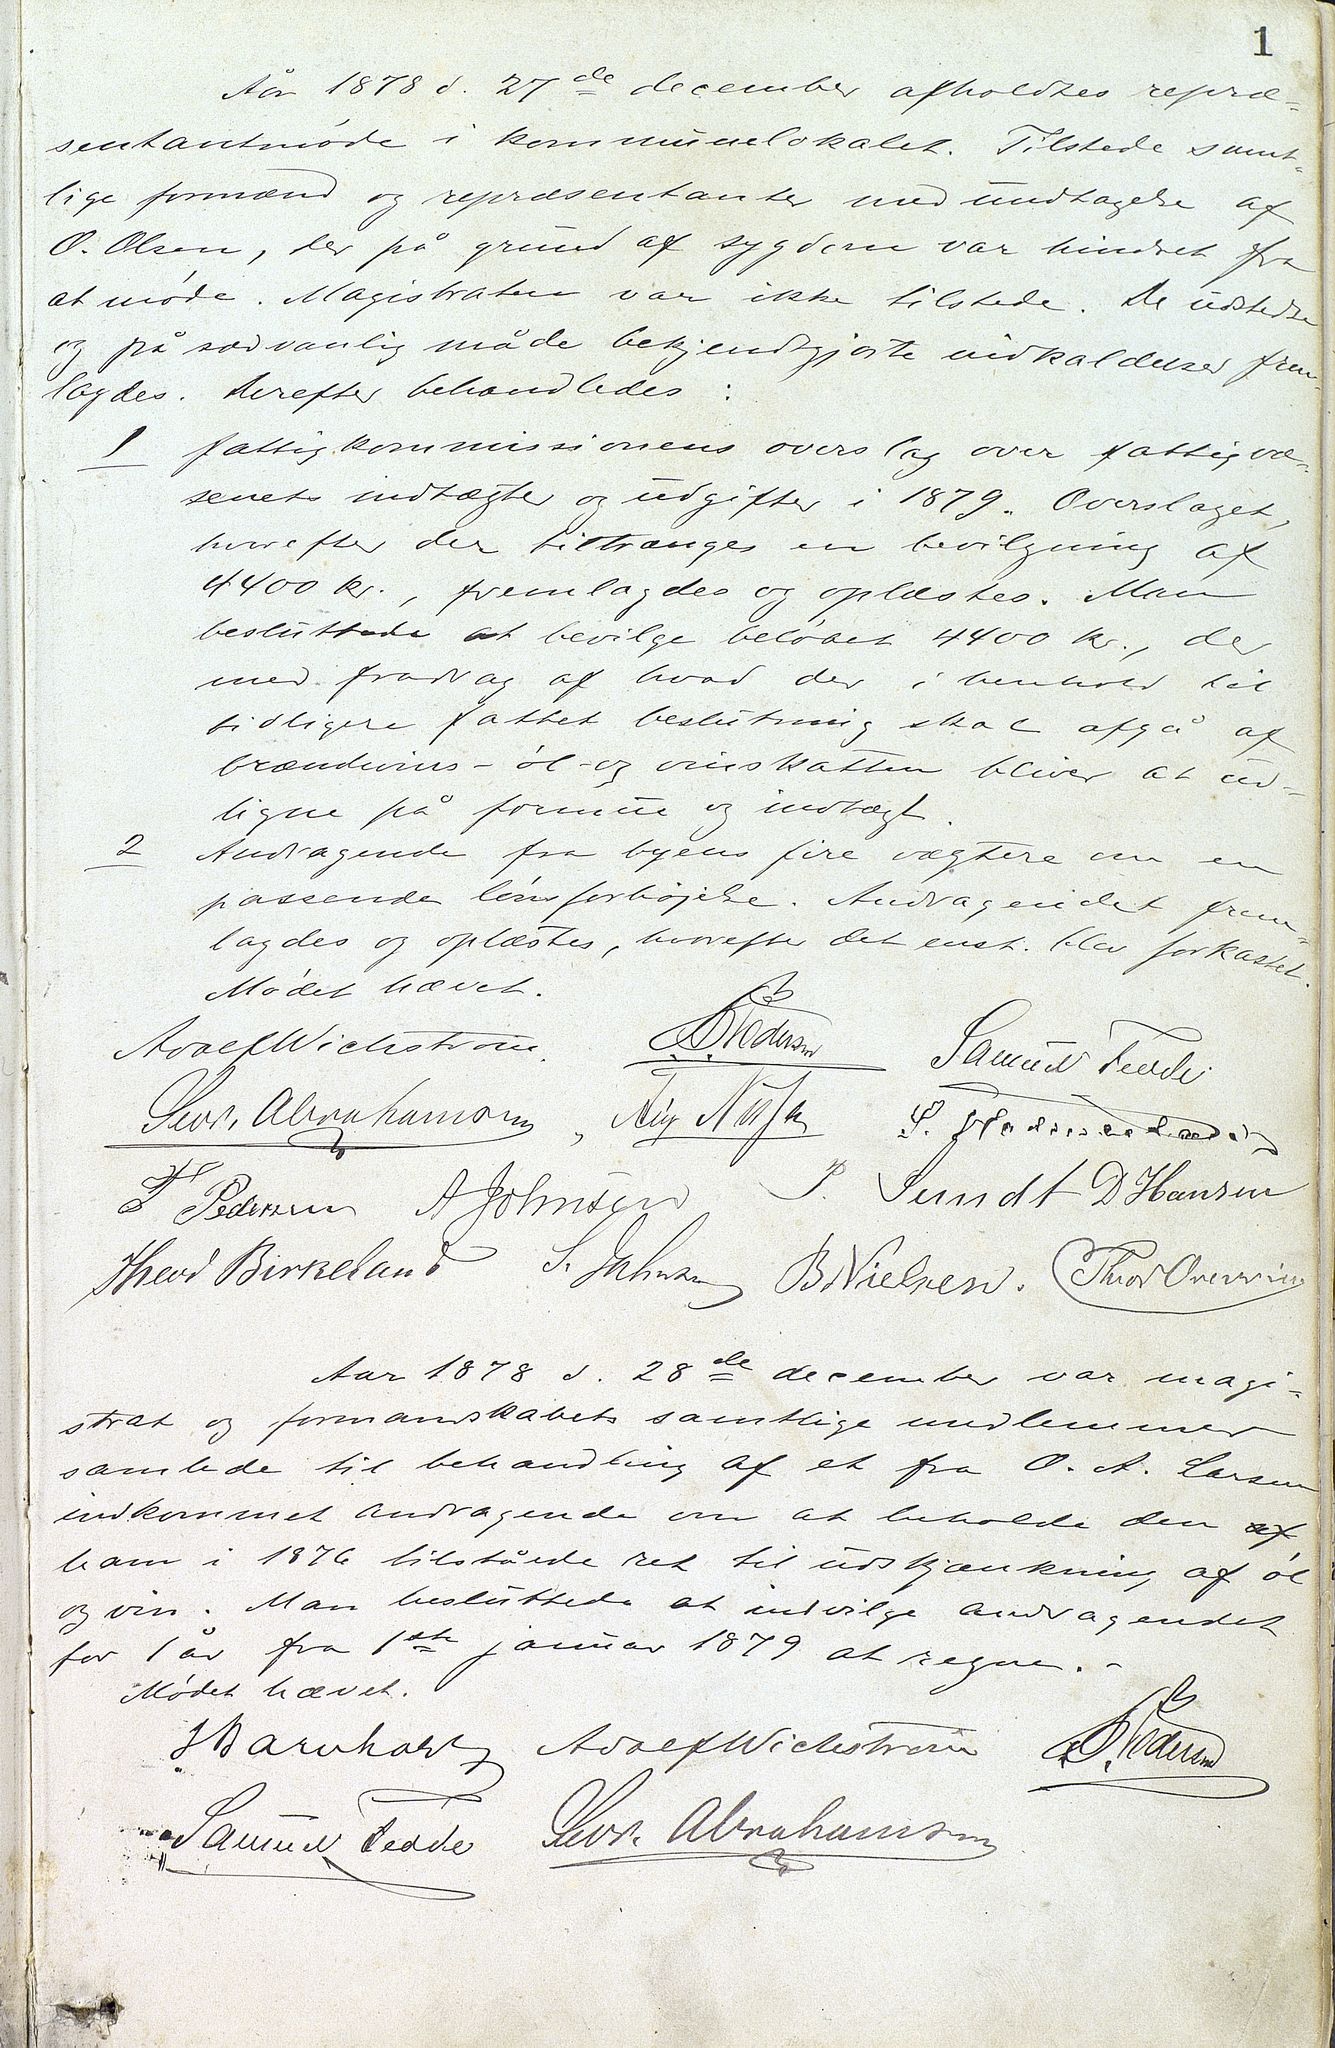 1
Aår 1878 d. 27de december afholdtes repræ-
sentantmøde i kommunelokalet. Tilstede samt-
lige formænd og repræsentanter med undtagelse af
O. Olsen, der på grund af sygdom var hindret fra
at møde. Magistraten var ikke tilstede. De udstedte
og på sædvanlig måde bekjendtgjorte indkaldelser frem-
lagdes. Derefter behandledes:
1 fattigkommissionens overslag over fattigvæ-
senets indtægter og udgifter i 1879. Overslaget,
hvorefter der tiltrænges en bevilgning af
4400 kr., fremlagdes og oplæstes. Man
besluttede at bevilge beløbet 4400 kr., der
med fradrag af hvad der i henhold til
tidligere fattet beslutning skal afgå af
brændevins- øl- og vinskatten bliver at ud-
ligne på formue og indtægt.
2 Andragende fra byens fire vægtere om en
passende lønsforhøjelse. Andragendet frem-
lagdes og oplæstes, hvorefter det enst. blev forkastet.
Mødet hævet.
Adolf Wichstrøm. Pedersen Samuel Fedde
Abrahamsen
Pedersen A Johnsen P. Sundt D Hansen
Theod Birkeland S. Johnsen B. Nielsen. Thor
Aar 1878 d. 28de december var magi-
strat og formandskabets samtlige medlemmer
samlede til behandling af et fra O. A. Larsen
indkommet andragende om at beholde den af
ham i 1876 tilståede ret til udskjænkning af øl
og vin. Man besluttede at indvilge andragendet
for 1 år fra 1ste januar 1879 at regne. -
Mødet hævet.
Adolf Wichstrøm Pedersen
Samuel Fedde Abrahamsen